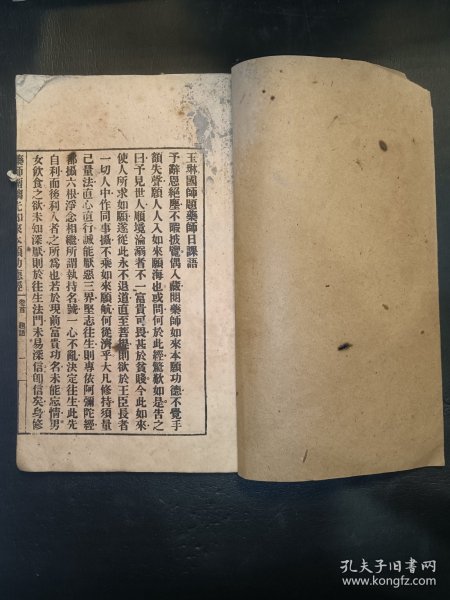 玉琳國師題藥師日課語
予辭恩絕塵不暇披覽偶入藏閱藥師如來本願功德不覺手
額失聲願人人入如來願海也或問何於此經驚歎如是告之
曰予見世人順境淪溺者不一富貴可畏甚於貧賤今此如來
使人所求如願遂從此永不退道直至菩提則欲於王臣長者
一切人中作同事攝不乘如來願航何從濟乎大凡修持須量
己量法直心直行誠能厭惡三界堅志往生則專依阿彌陀經
都攝六根淨念相繼所謂執持名號一心不亂決定往生此先
自利而後利人者之所為也若於現前富貴功名未能忘情男
女飲食之欲未知深厭則於往生法門未易深信卽信矣身修
藥師琉璃光如來本願功德經 卷首 題語 一
孔夫子旧书网
www.kongfz.com